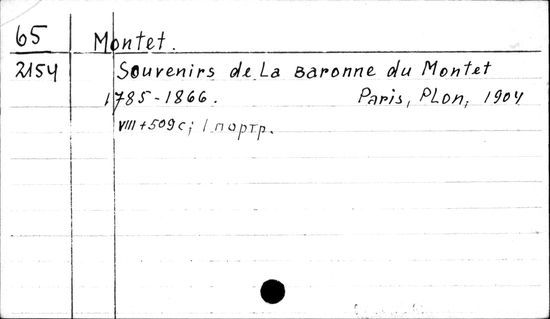 65
2154
Montet.
Souvenirs de La Baronne du Montet
1785-1866. Paris, Plon, 1904
VIII+509c; 1 портр.